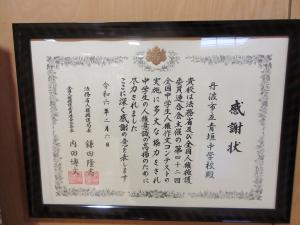 感謝状
丹波市立青垣中学校殿
貴校は法務省及び全国人権擁護
委員連合会主催の第四十二回
全国中学生人権作文コンテストの
実施に多大な協力をされ
中学生の人権意識の高揚のために
尽力されました
ここに深く感謝の意を表します
令和六年二月六日
法務省人権擁護局長
鎌田隆志
全国人権擁護委員連合会長
内田博文